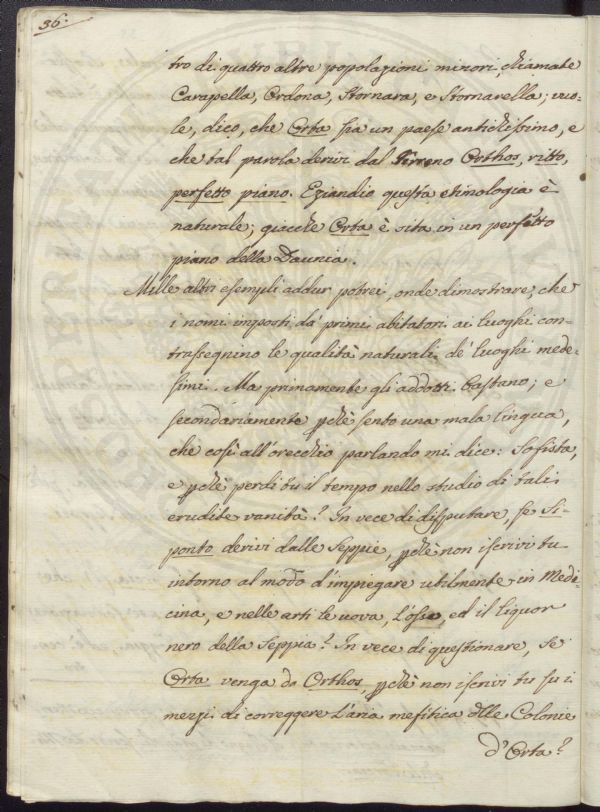 36.
tro di quattro altre popolazioni minori, chiamate
Carapella, Ordona, Stornara, e Stornarella; vuo-
le, dico, che Orta sia un paese antichissimo, e
che tal parola derivi dal Tirreno Orthos, ritto,
perfetto piano. Eziandio questa etimologia è
naturale; giacchè Orta è sita in un perfetto
piano della Daunia.
Mille altri esempli addur potrei, onde dimostrare, che
i nomi imposti da' primi abitatori ai luoghi con-
trassegnino le qualità naturali de' luoghi mede-
simi. Ma primamente gli addotti bastano; e
secondariamente pchè sento una mala lingua,
che così all'orecchio parlando mi dice: Sofista,
e pchè perdi tu il tempo nello studio di tali
erudite vanità? In vece di disputare, se Si-
ponto derivi dalle Seppie, pchè non iscrivi tu
intorno al modo d'impiegare utilmente in Medi-
cina, e nelle arti le uova, l'osso, ed il liquor
nero della Seppia? In vece di questionare, se
Orta venga da Orthos, pchè non iscrivi tu su i
mezzi di correggere l'aria mefitica dlle Colonie
d'Orta?